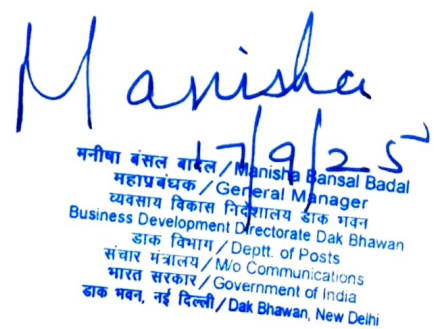 Manisha
17/9/25
मनीषा बंसल बादल / Manisha Bansal Badal
महाप्रबंधक / General Manager
व्यवसाय विकास निदेशालय डाक भवन
Business Development Directorate Dak Bhawan
डाक विभाग / Deptt. of Posts
संचार मंत्रालय / M/o Communications
भारत सरकार / Government of India
डाक भवन, नई दिल्ली / Dak Bhawan, New Delhi